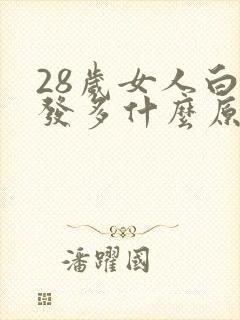 28歲女人白
發多什麼原
潘躍國